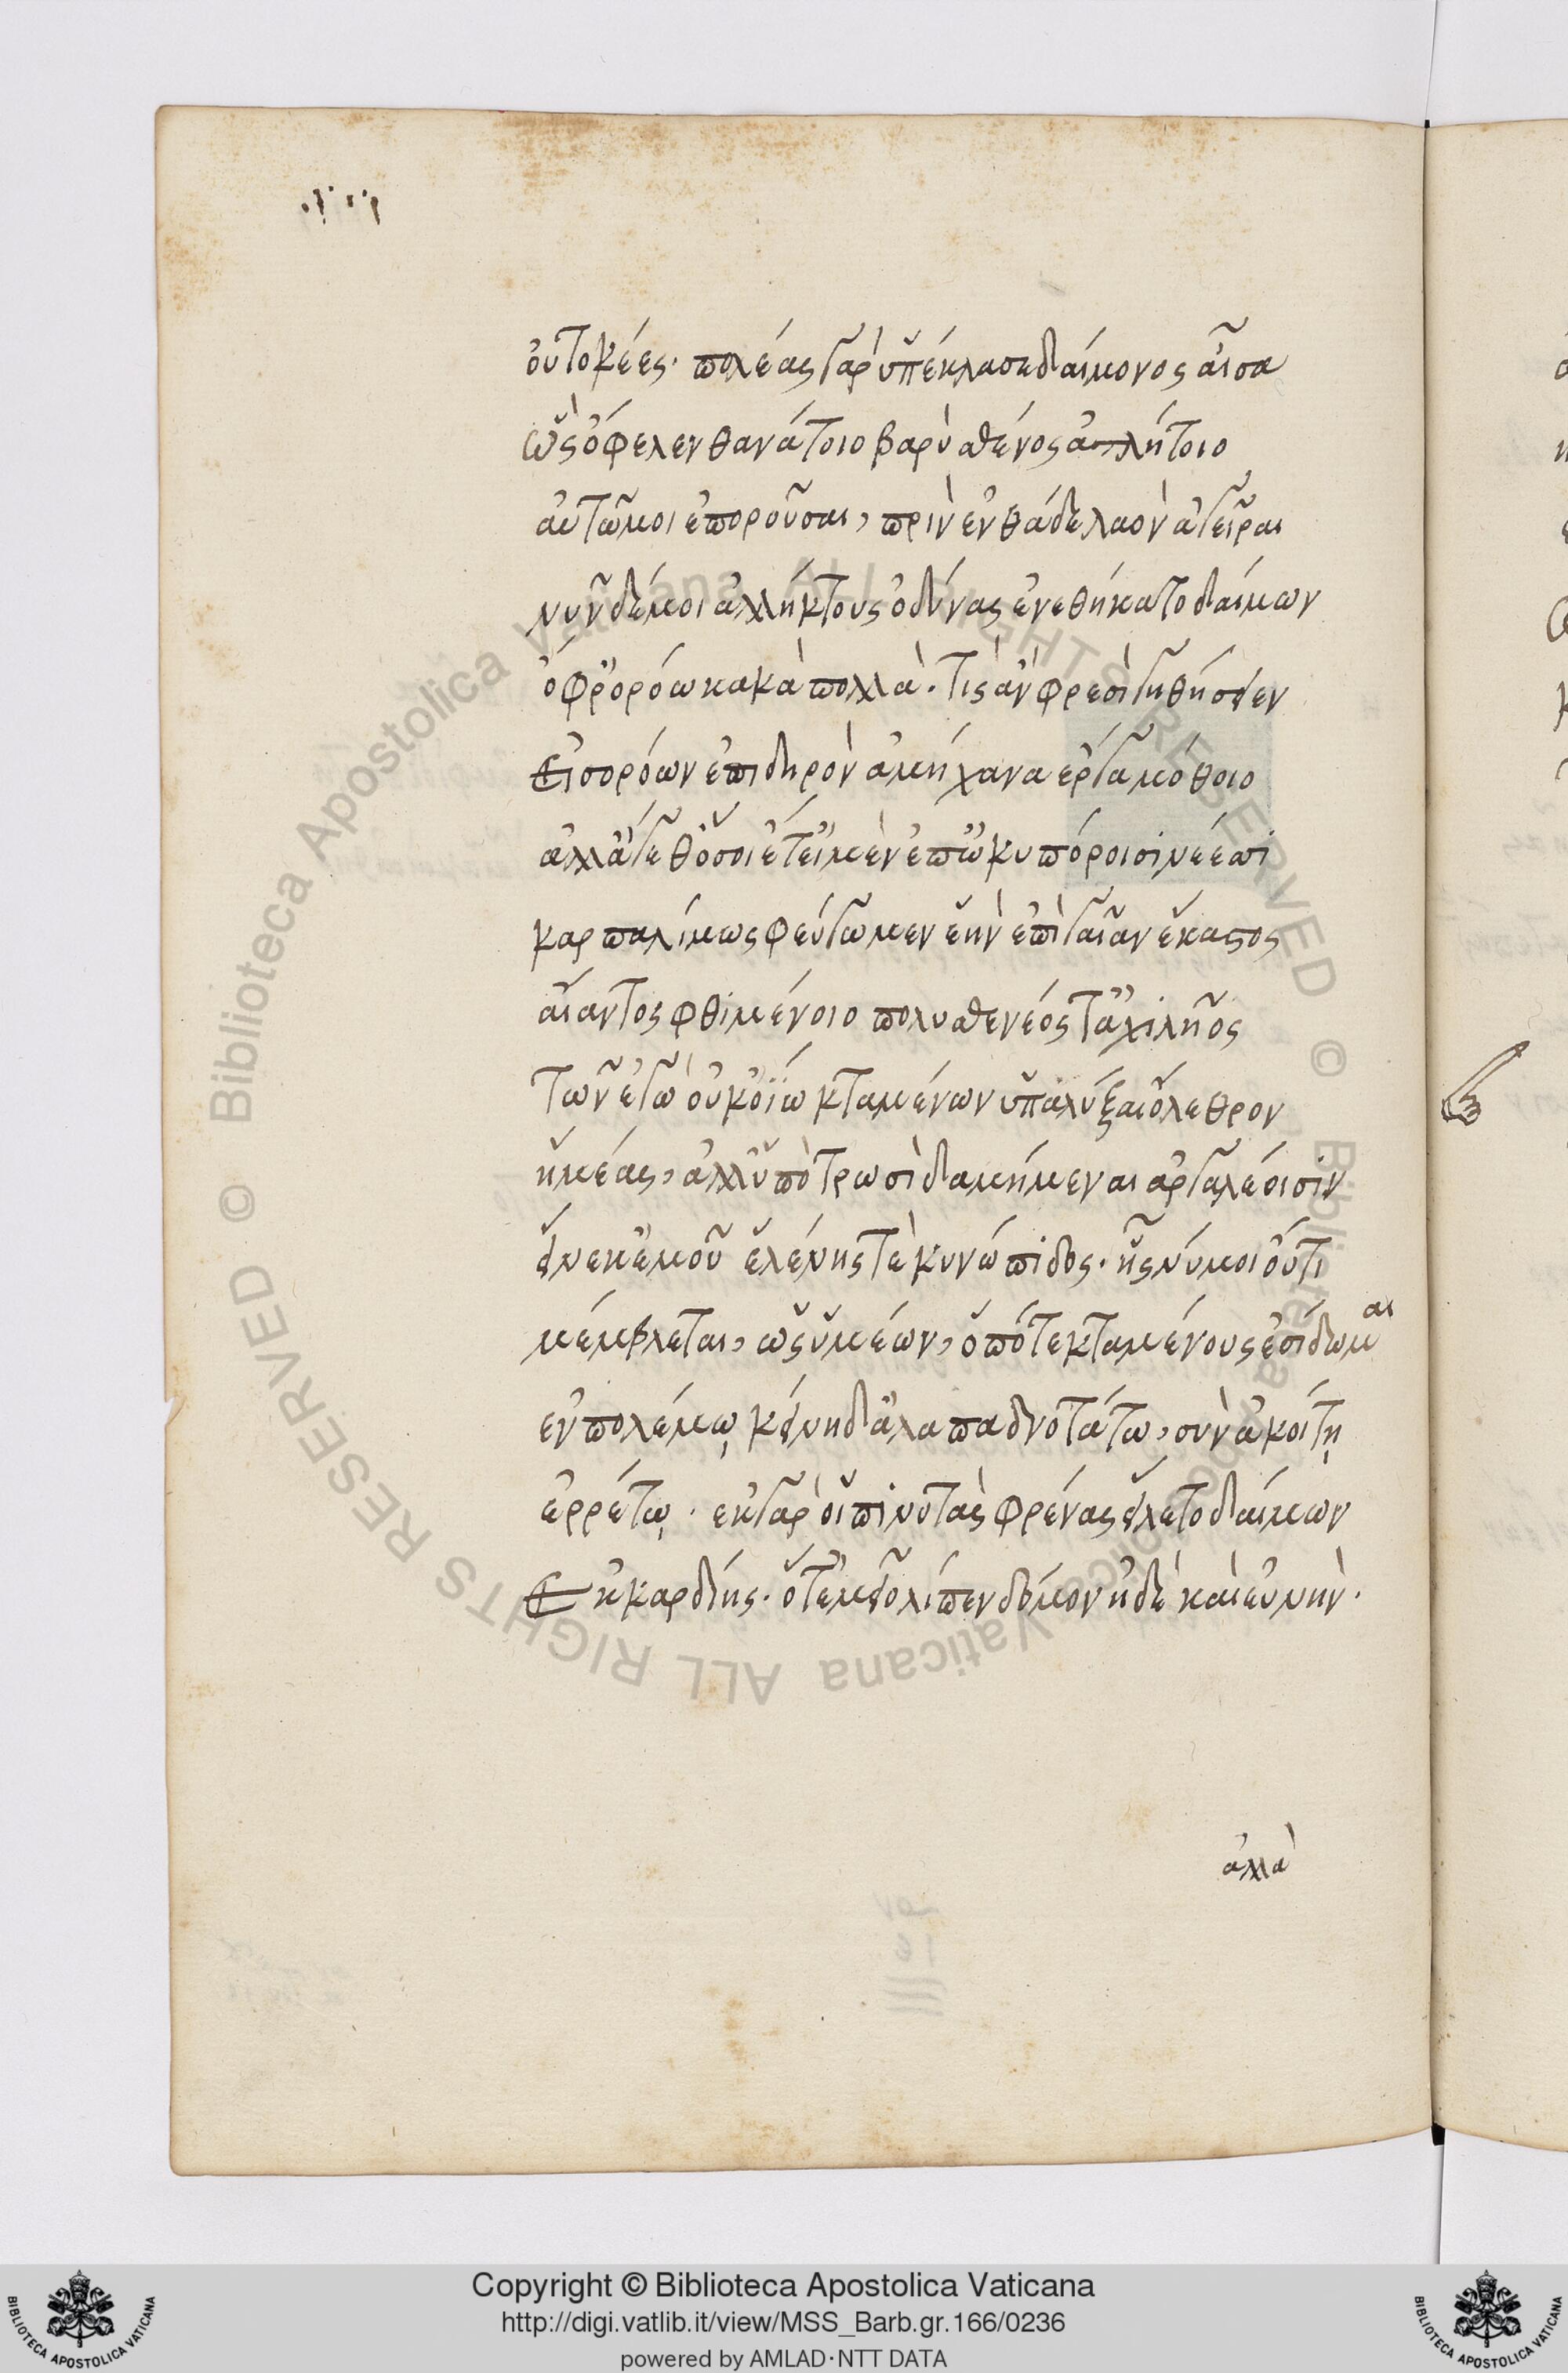 οὐ τοκέες· πολέας γὰρ ὑπέκλασε δαίμονος αἶσα
ὡς ὄφελεν θανάτοιο βαρὺ σθένος ἀπλήτοιο
αὐτῷ μοι ἐποροῦσαι, πρὶν ἐνθάδε λαὸν ἀγεῖραι
νῦν δέ μοι ἀλλήκτους ὀδύνας ἐνεθήκατο δαίμων
ὄφρ' ὁρόω κακὰ πολλά· τίς ἂν φρεσὶ γηθήσειεν
εἰσορόων ἐπιδηρὸν ἀμήχανα ἔργα μόθοιο
ἀλλ' ἄγεθ' ὅσοι ἔτ' εἰμὲν ἐπ' ὠκυπόροισι νέεσσι
καρπαλίμως φεύγωμεν ἑὴν ἐπὶ γαῖαν ἕκαστος
αἴαντος φθιμένοιο πολυσθενέος τ' ἀχιλῆος
τῶν ἐγὼ οὐκ ὀΐω κταμένων ὑπαλύξαι ὄλεθρον
ἡμέας, ἀλλ' ὑπὸ τρωσὶ δαμήμεναι ἀργαλέοισιν
εἵνεκ' ἐμοῦ ἑλένης τὲ κυνώπιδος· ἧς νύ μοι οὔτι
μέμβλεται, ὡς ὑμέων, ὁπότε κταμένους ἐσίδωμαι
ἐν πολέμῳ κείνη δ' ἀλαπαδνοτάτω, σὺν ἀκοίτῃ
ἐρρέτω· ἐκ γάρ οἱ πινυτὰς φρένας εἵλετο δαίμων
Ἐκ κραδίης· ὅτ' ἐμεῖο λίπεν δόμον ἠδὲ καὶ εὐνήν·
ἀλλὰ
Copyright © Biblioteca Apostolica Vaticana
http://digi.vatlib.it/view/MSS_Barb.gr.166/0236
powered by AMLAD·NTT DATA